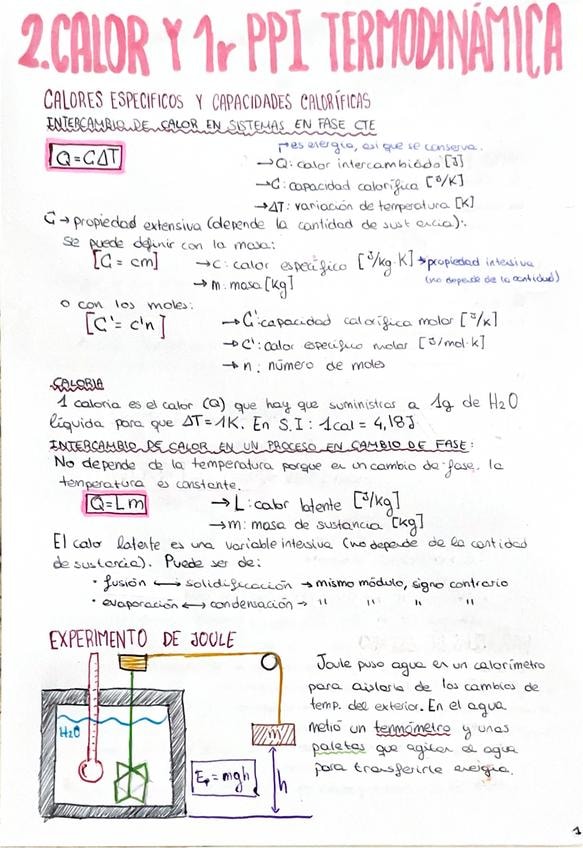 2.CALOR Y 1r PPI TERMODINÁMICA
CALORES ESPECIFICOS Y CAPACIDADES CALORÍFICAS
INTERCAMBIO DE CALOR EN SISTEMAS EN FASE CTE
Q=CΔT
→es energía, así que se conserva.
→Q: calor intercambiado [J]
→C: capacidad calorífica [J/K]
→ΔT: variación de temperatura [K]
C → propiedad extensiva (depende la cantidad de sustancia):
se puede definir con la masa:
[C = cm] →c: calor específico [J/kg·K] →propiedad intensiva
→ m: masa [kg] (no depende de la cantidad)
o con los moles:
[C'= c'n] →C': capacidad calorífica molar [J/K]
→ C': calor específico molar [J/mol·K]
→ n: número de moles
CALORIA
1 caloria es el calor (Q) que hay que suministras a 1g de H2O
líquida para que ΔT=1K. En S.I: 1cal = 4,18J
INTERCAMBIO DE CALOR EN UN PROCESO EN CAMBIO DE FASE:
No depende de la temperatura porque en un cambio de fase. la
temperatura es constante.
Q=Lm → L: calor latente [J/kg]
→m: masa de sustancia [kg]
El calor latente es una variable intensiva (no depende de la cantidad
de sustancia). Puede ser de:
· fusión ↔ solidificación → mismo módulo, signo contrario
· evaporación ↔ condensación → " " " "
EXPERIMENTO DE JOULE
H2O
m
h
Ep = mgh
Joule puso agua en un calorímetro
para aislarla de los cambios de
temp. del exterior. En el agua
metió un termómetro y unas
paletas que agitan el agua
para transferirle energía.
1